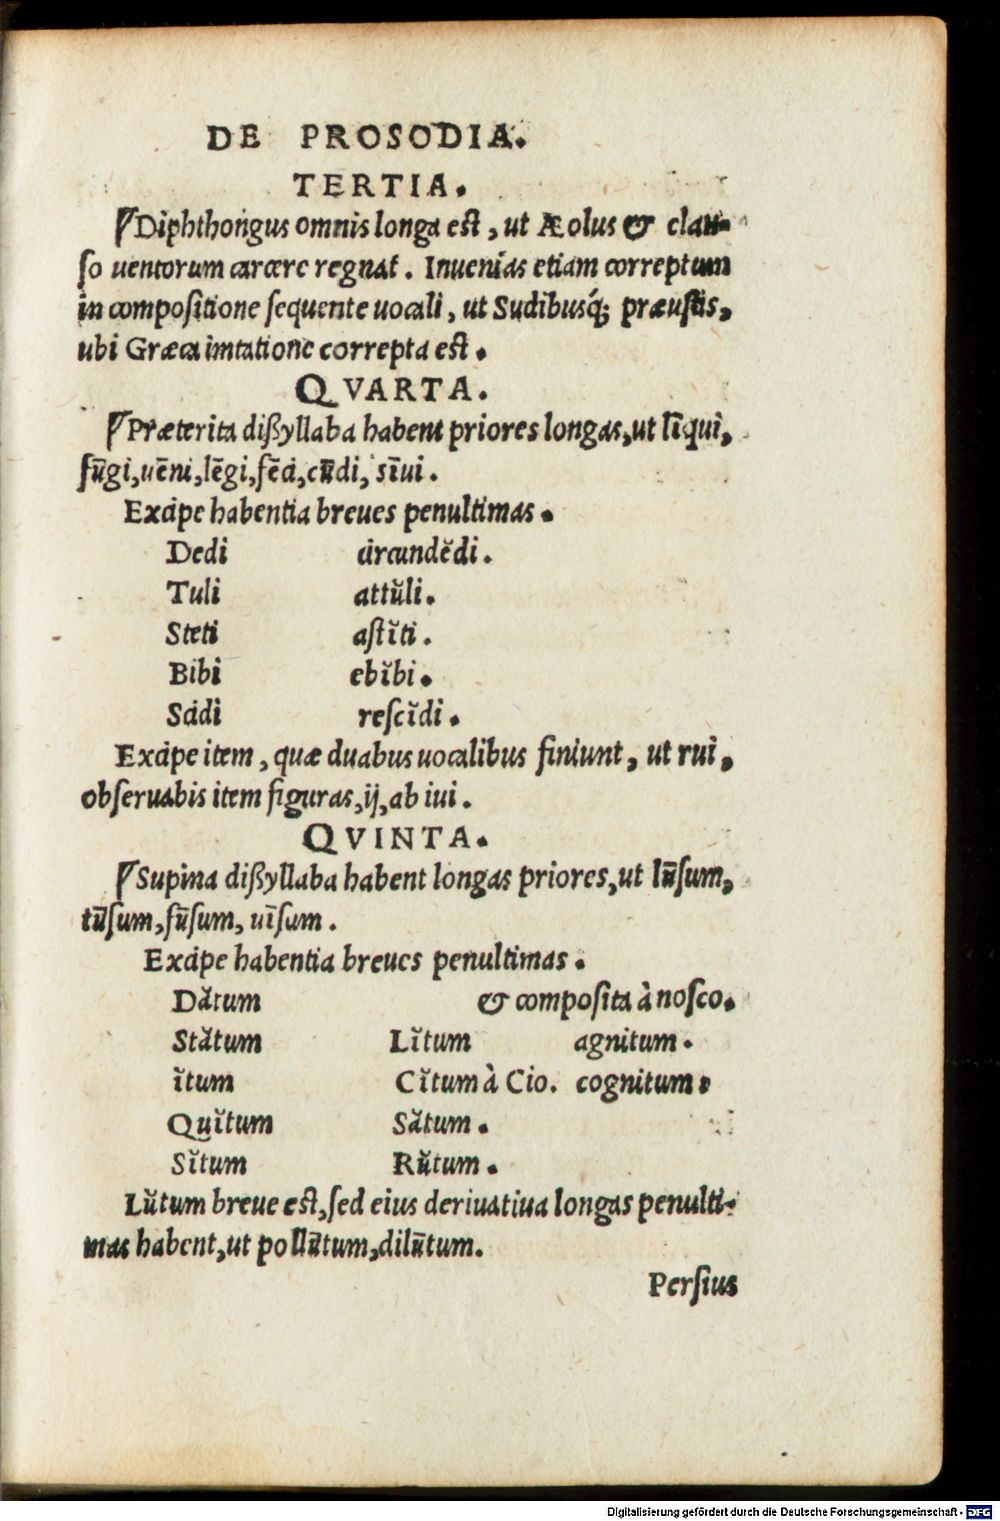 DE PROSODIA.
TERTIA.
Diphthongus omnis longa est, ut Æolus & clau-
ſo uentorum carcere regnat. Inuenías etiam correptum
in compoſitione ſequente uocali, ut Sudibusq́; præuſtis,
ubi Græca imtatione correpta est.
QVARTA.
Præterita dißyllaba habent priores longas, ut līqui,
fūgi, uēni, lēgi, fēci, cūdi, sīui.
Excipe habentia breues penultimas.
Dedi circundĕdi.
Tuli attŭli.
Steti aſtĭti.
Bibi ebĭbi.
Scidi reſcĭdi.
Excipe item, quæ duabus uocalibus finiunt, ut rui,
obſeruabis item figuras, ij, ab iui.
QVINTA.
Supina dißyllaba habent longas priores, ut lūſum,
tūſum, fūſum, uīſum.
Excipe habentia breues penultimas.
Dătum & compoſita à noſco.
Stătum Lĭtum agnitum.
ĭtum Cĭtum à Cio. cognitum.
Quĭtum Sătum.
Sĭtum Rŭtum.
Lŭtum breue est, ſed eius deriuatiua longas penulti-
mas habent, ut pollūtum, dilūtum.
Perſius
Digitalisierung gefördert durch die Deutsche Forschungsgemeinschaft - DFG